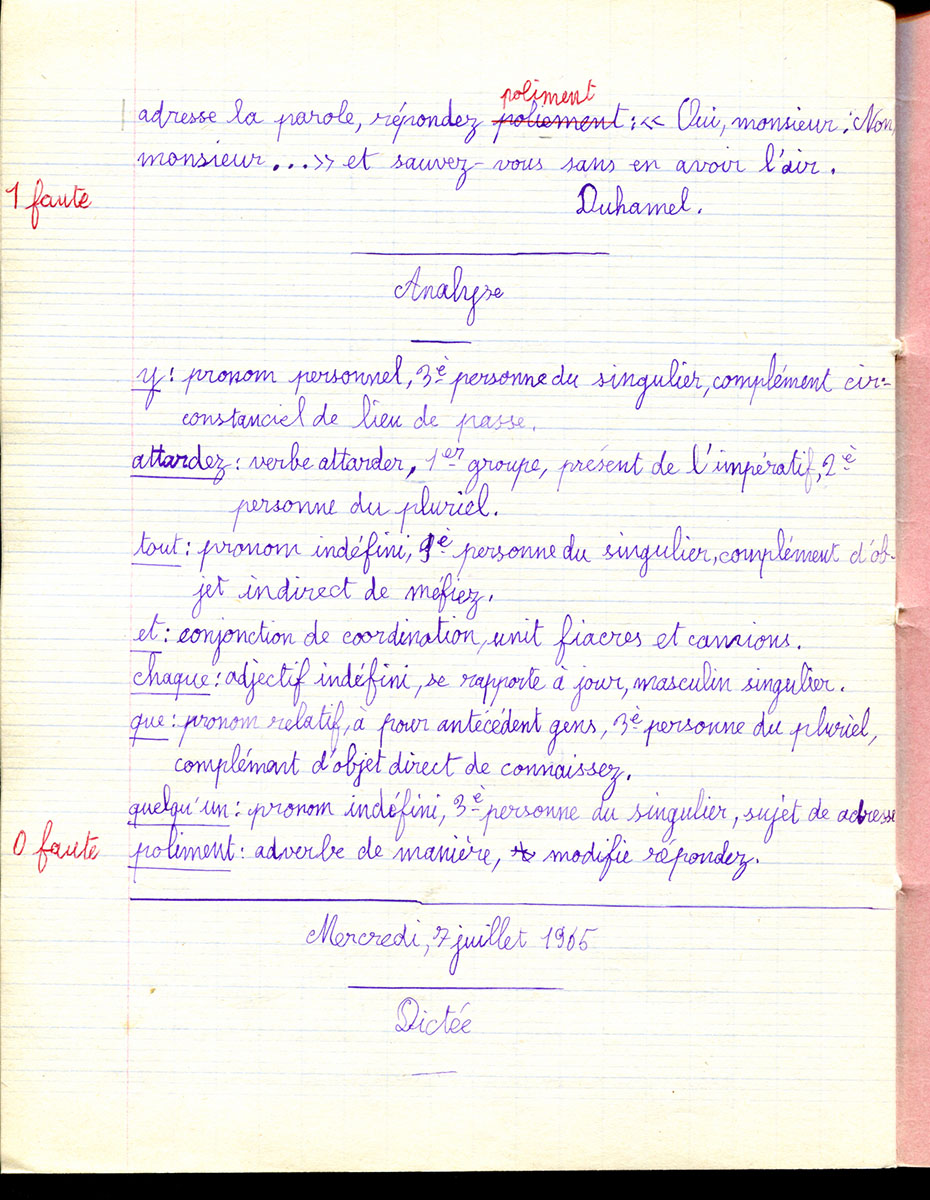 poliment
adresse la parole, répondez poliement : << Oui, monsieur ; Non,
monsieur...>> et sauvez-vous sans en avoir l'air.
1 faute
Duhamel.
Analyse
y : pronom personnel, 3è personne du singulier, complément cir-
constanciel de lieu de passe.
attardez : verbe attarder, 1er groupe, présent de l'impératif, 2è
personne du pluriel.
tout : pronom indéfini, 3è personne du singulier, complément d'ob-
jet indirect de méfiez.
et : conjonction de coordination, unit fiacres et camions.
chaque : adjectif indéfini, se rapporte à jour, masculin singulier.
que : pronom relatif, à pour antécédent gens, 3è personne du pluriel,
complémant d'objet direct de connaissez.
quelqu'un : pronom indéfini, 3è personne du singulier, sujet de adresse
0 faute
poliment : adverbe de manière, modifie répondez.
Mercredi, 7 juillet 1965
Dictée